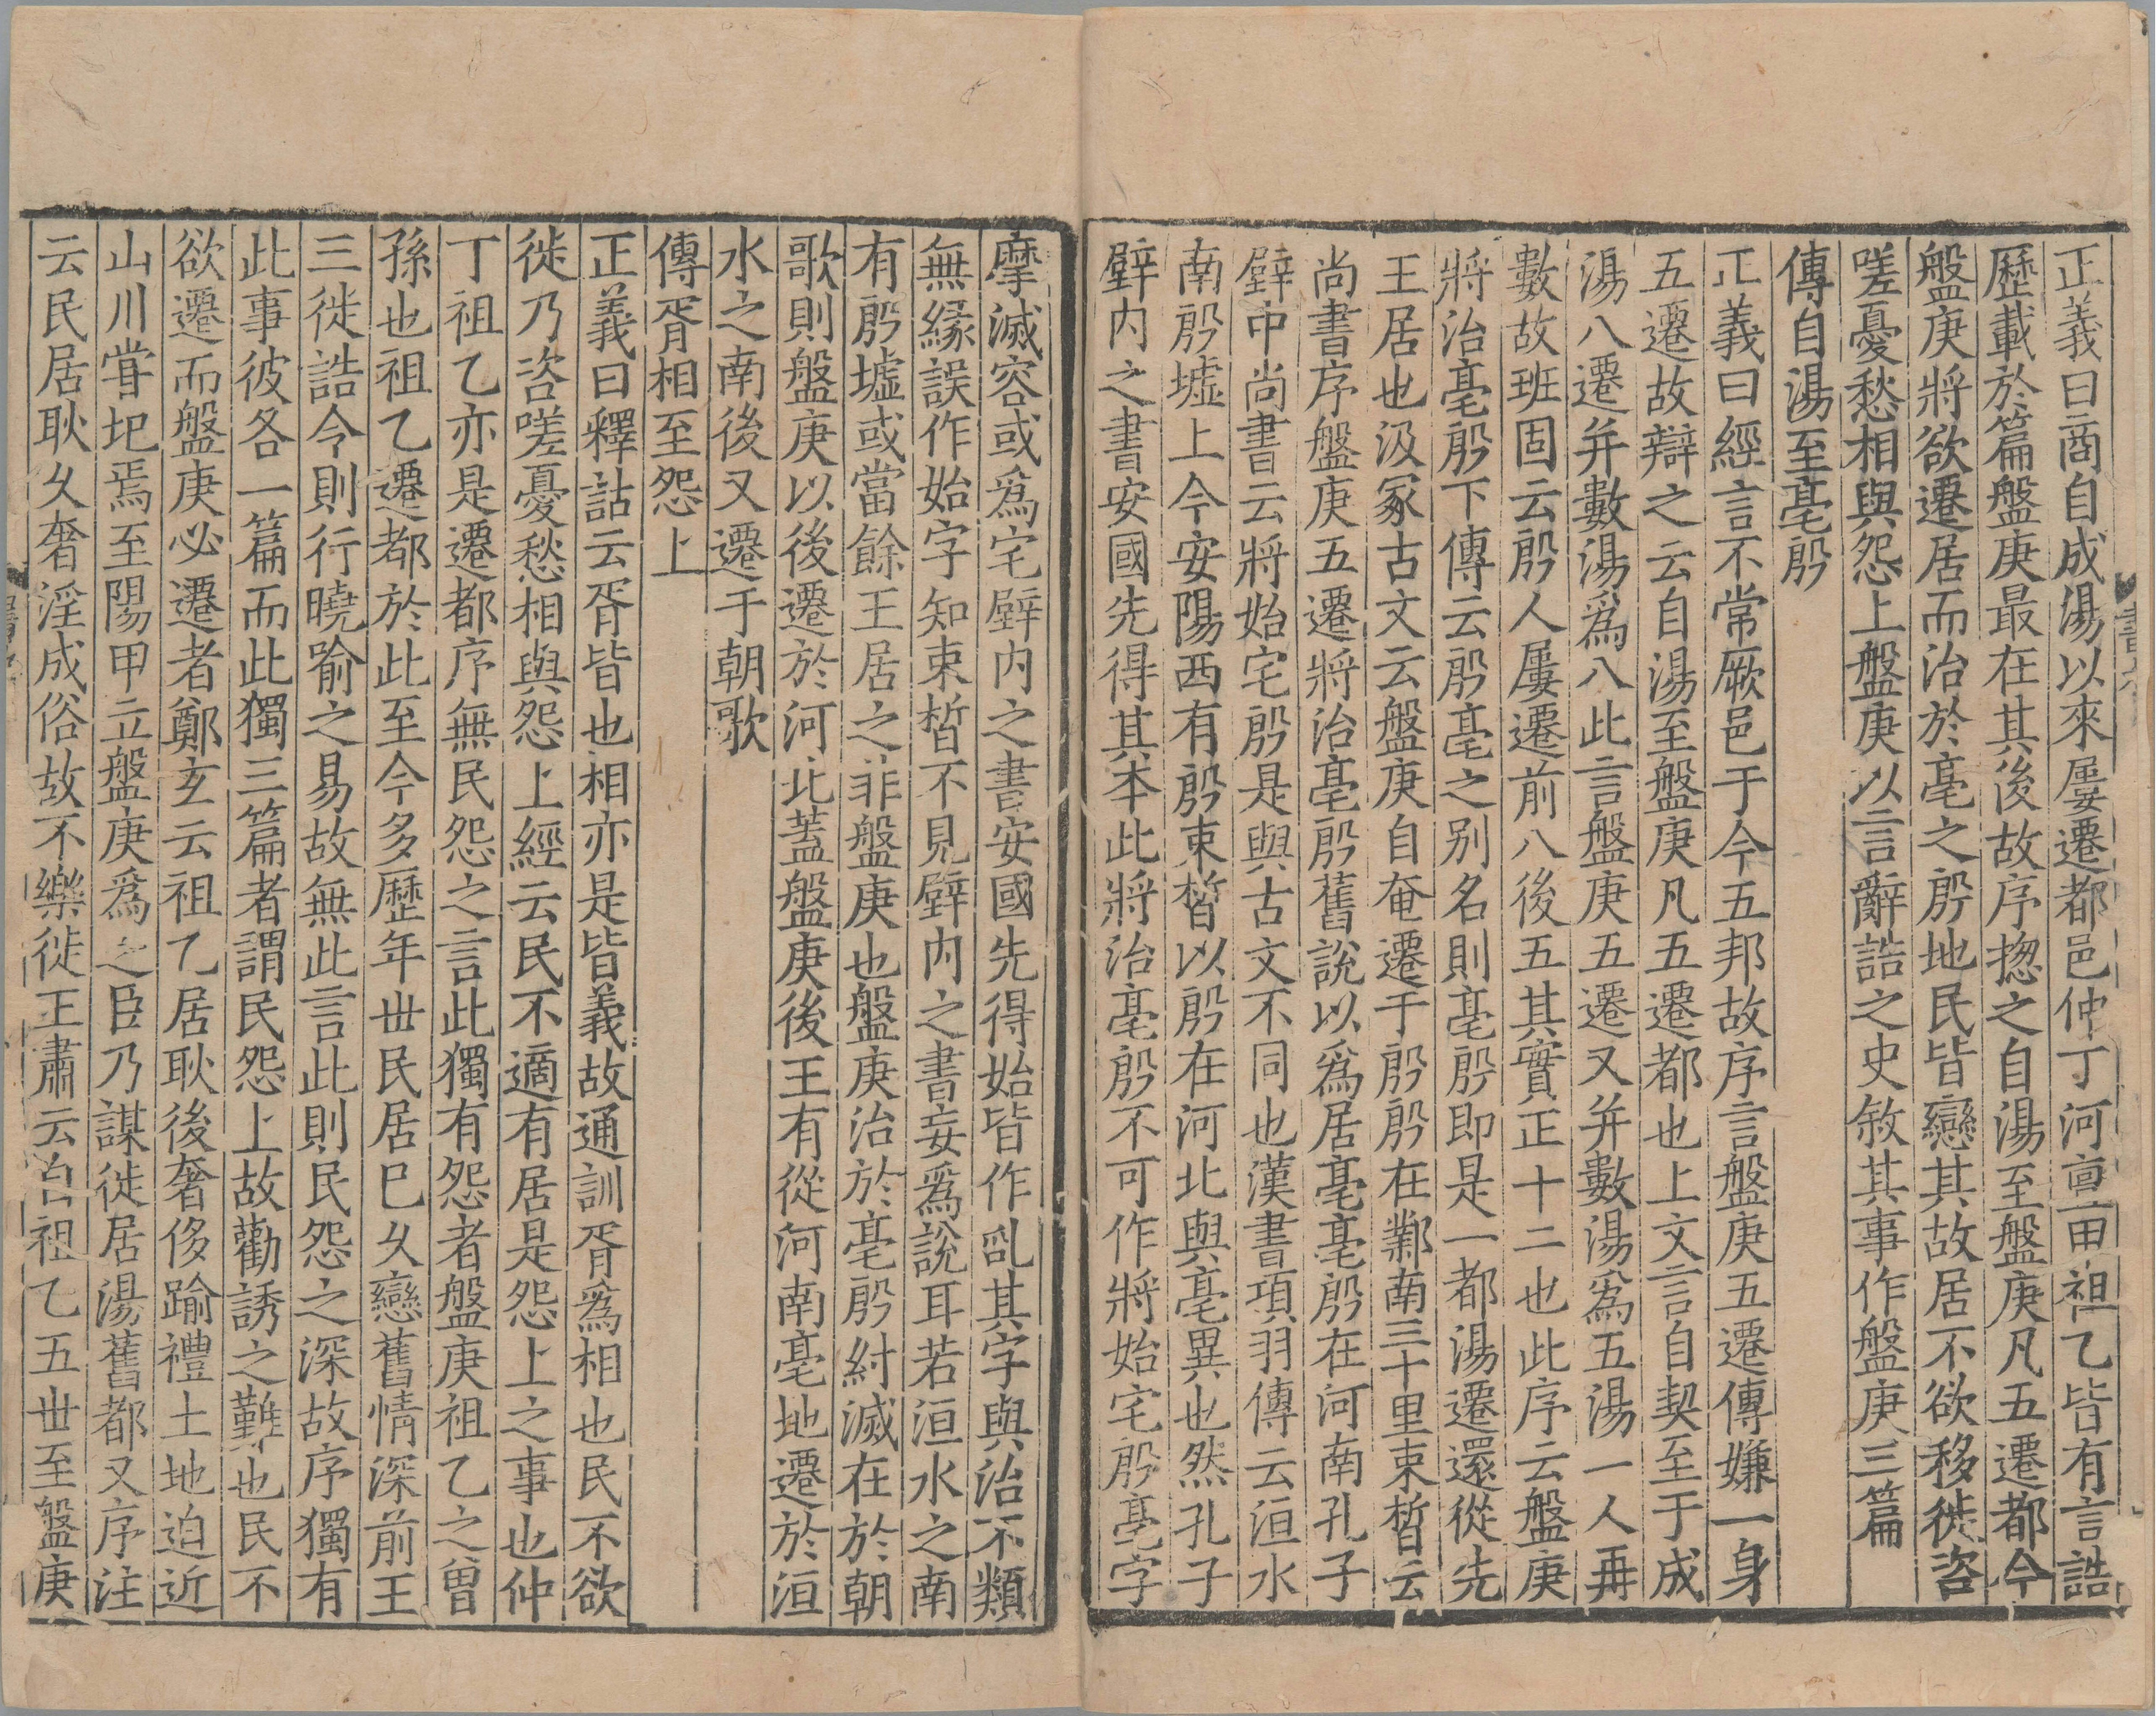 正義曰商自成湯以來屢遷都邑仲丁河亶甲祖乙皆有言誥
歷載於篇盤庚最在其後故序揔之自湯至盤庚凡五遷都今
盤庚將欲遷居而治於亳之殷地民皆戀其故居不欲移徙咨
嗟憂愁相與怨上盤庚以言辭誥之史敘其事作盤庚三篇
傳自湯至亳殷
正義曰經言不常厥邑于今五邦故序言盤庚五遷傳嫌一身
五遷故辯之云自湯至盤庚凡五遷都也上文言自契至于成
湯八遷并數湯爲八此言盤庚五遷又并數湯爲五湯一人再
數故班固云殷人屢遷前八後五其實正十二也此序云盤庚
將治亳殷下傳云殷亳之别名則亳殷即是一都湯遷還從先
王居也汲冢古文云盤庚自奄遷于殷殷在鄴南三十里束皙云
尚書序盤庚五遷將治亳殷舊說以爲居亳亳殷在河南孔子
壁中尚書云將始宅殷是與古文不同也漢書項羽傳云洹水
南殷墟上今安陽西有殷束皙以殷在河北與亳異也然孔子
壁内之書安國先得其本此將治亳殷不可作將始宅殷亳字
摩滅容或爲宅壁内之書安國先得始皆作乱其字與治不類
無緣誤作始字知束皙不見壁内之書妄爲說耳若洹水之南
有殷墟或當餘王居之非盤庚也盤庚治於亳殷紂滅在於朝
歌則盤庚以後遷於河北蓋盤庚後王有從河南亳地遷於洹
水之南後又遷于朝歌
傳胥相至怨上
正義曰釋詁云胥皆也相亦是皆義故通訓胥爲相也民不欲
徙乃咨嗟憂愁相與怨上經云民不適有居是怨上之事也仲
丁祖乙亦是遷都序無民怨之言此獨有怨者盤庚祖乙之曾
孫也祖乙遷都於此至今多歷年世民居已久戀舊情深前王
三徙誥令則行曉喻之易故無此言此則民怨之深故序獨有
此事彼各一篇而此獨三篇者謂民怨上故勸誘之難也民不
欲遷而盤庚必遷者鄭玄云祖乙居耿後奢侈踰禮土地迫近
山川甞圯焉至陽甲立盤庚爲之臣乃謀徙居湯舊都又序注
云民居耿久奢淫成俗故不樂徙王肅云自祖乙五世至盤庚